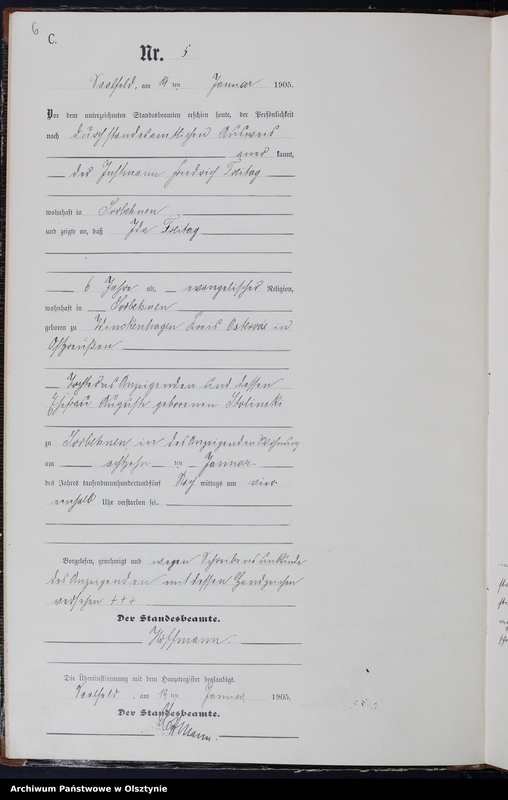 6
C.
Nr. 5
Saalfeld, am 19 ten Januar 1905.
Vor dem unterzeichneten Standesbeamten erschien heute, der Persönlichkeit
nach durch standesamtlichen Ausweis
aner kannt,
der Instmann Friedrich Freitag
wohnhaft in Sorbehnen
und zeigte an, daß Ida Freitag
6 Jahre alt, evangelischer Religion,
wohnhaft in Sorbehnen
geboren zu Kreis Osterode in
Ostpreußen
Tochter des Anzeigenden und dessen
Ehefrau Auguste geborenen Stolinski
zu Sorbehnen in des Anzeigenden Wohnung
am achtzehn ten Januar
des Jahres tausendneunhundertundfünf Nach mittags um vier
einhalb Uhr verstorben sei.
Vorgelesen, genehmigt und wegen Schreibensunkunde
des Anzeigenden mit dessen Handzeichen
versehen +++
Der Standesbeamte.
Hoffmann.
Die Übereinstimmung mit dem Hauptregister beglaubigt.
Saalfeld, am 19 ten Januar 1905.
Der Standesbeamte.
Hoffmann.
Archiwum Państwowe w Olsztynie